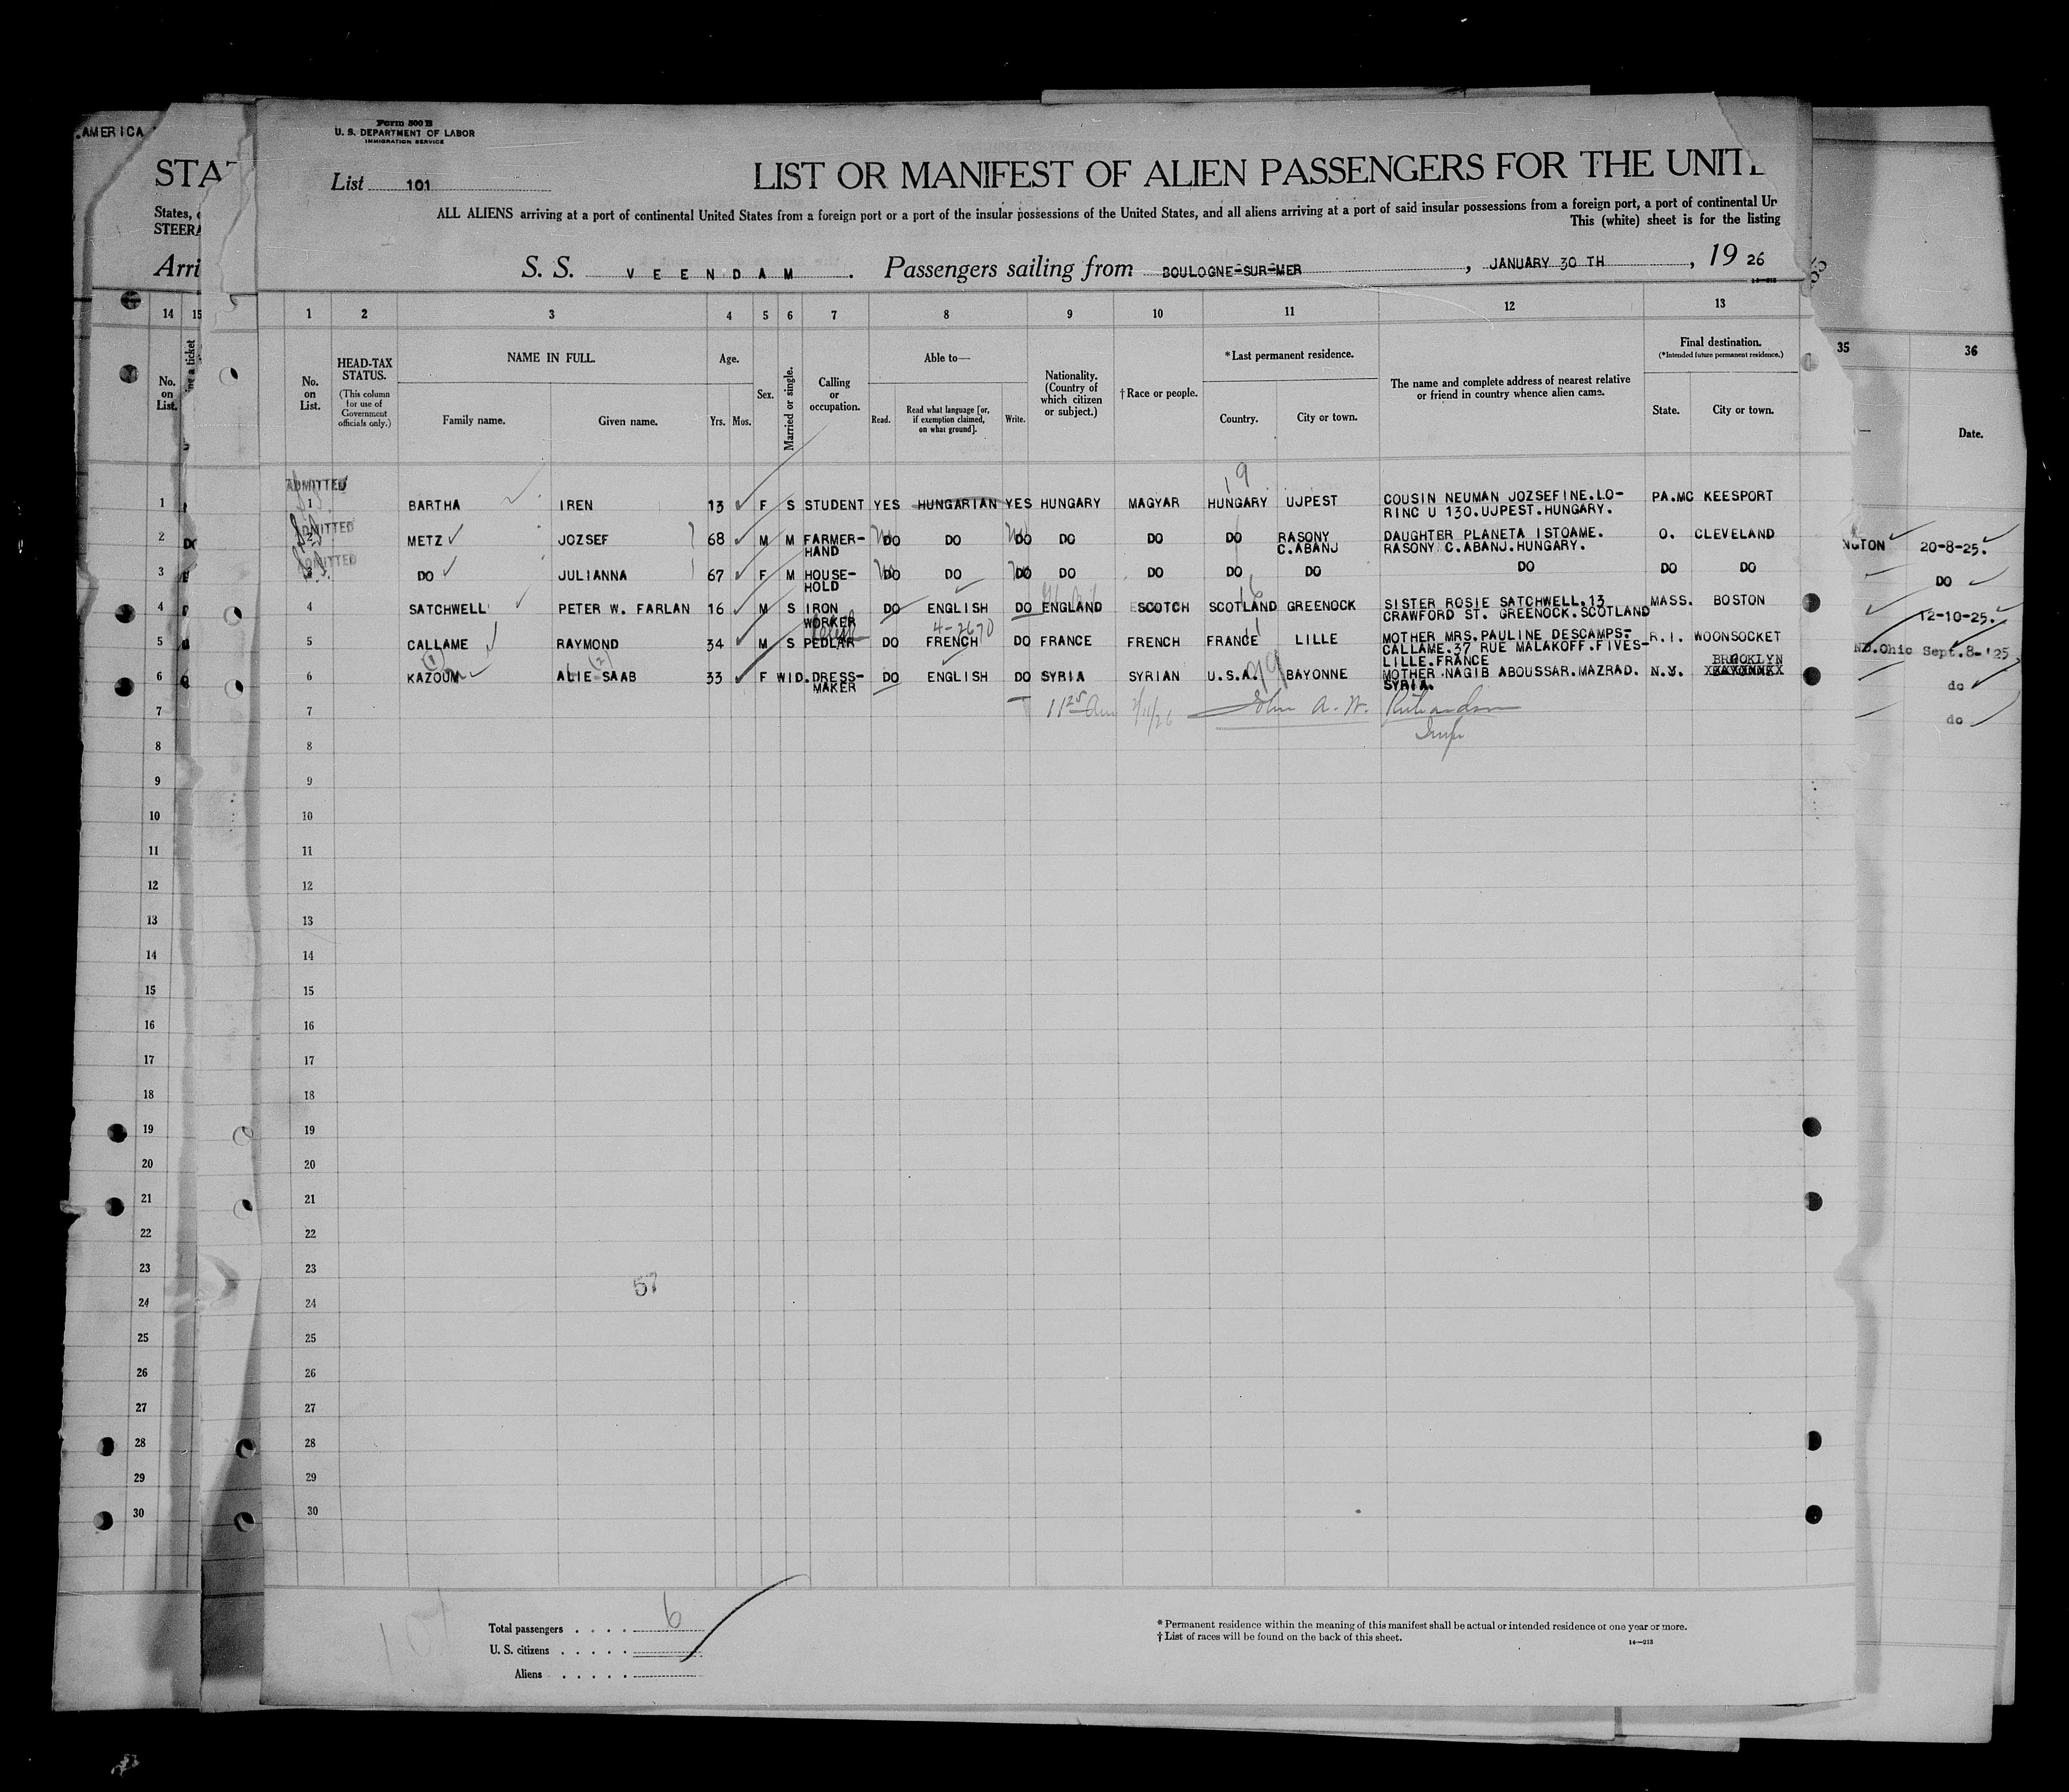 .AMERICA
STAT
States, o
STEERA
Arri
14 15
No.
on
List.
Form 500 B
U. S. DEPARTMENT OF LABOR
IMMIGRATION SERVICE
List 101
LIST OR MANIFEST OF ALIEN PASSENGERS FOR THE UNITE
ALL ALIENS arriving at a port of continental United States from a foreign port or a port of the insular possessions of the United States, and all aliens arriving at a port of said insular possessions from a foreign port, a port of continental Un
This (white) sheet is for the listing
S. S. VEENDAM . Passengers sailing from BOULOGNE-SUR-MER , JANUARY 30 TH , 19 26
1 2 3 4 5 6 7 8 9 10 11 12 13
No. on List.
HEAD-TAX STATUS. (This column for use of Government officials only.)
NAME IN FULL.
Family name. Given name.
Age.
Yrs. Mos.
Sex.
Married or single.
Calling or occupation.
Able to—
Read. Read what language [or, if exemption claimed, on what ground]. Write.
Nationality. (Country of which citizen or subject.)
†Race or people.
*Last permanent residence.
Country. City or town.
The name and complete address of nearest relative or friend in country whence alien came.
Final destination.
(*Intended future permanent residence.)
State. City or town.
35 36
Date.
19
ADMITTED
1 BARTHA IREN 13 F S STUDENT YES HUNGARIAN YES HUNGARY MAGYAR HUNGARY UJPEST COUSIN NEUMAN JOZSEFINE.LO-RINC U 130.UJPEST.HUNGARY. PA. MC KEESPORT
ADMITTED
2 METZ JOZSEF 68 M M FARMER-HAND DO DO DO DO DO DO RASONY C.ABANJ DAUGHTER PLANETA ISTOAME. RASONY C.ABANJ.HUNGARY. O. CLEVELAND
ADMITTED
3 DO JULIANNA 67 F M HOUSE-HOLD DO DO DO DO DO DO DO DO DO DO
4 SATCHWELL PETER W. FARLAN 16 M S IRON WORKER DO ENGLISH DO ENGLAND SCOTCH SCOTLAND GREENOCK SISTER ROSIE SATCHWELL.13 CRAWFORD ST. GREENOCK.SCOTLAND MASS. BOSTON
5 CALLAME RAYMOND 34 M S PEDLAR DO FRENCH DO FRANCE FRENCH FRANCE LILLE MOTHER MRS.PAULINE DESCAMPS-CALLAME.37 RUE MALAKOFF.FIVES-LILLE.FRANCE R.I. WOONSOCKET
6 KAZOUM ALIE SAAB 33 F WID. DRESS-MAKER DO ENGLISH DO SYRIA SYRIAN U.S.A. BAYONNE MOTHER NAGIB ABOUSSAR.MAZRAD. SYRIA. N.Y. BROOKLYN
NGTON 20-8-25.
DO
12-10-25.
ND.Ohio Sept.8-'25
do
do
4-2670
11 25 Am 2/11/26 John A. W. Richardson
Insp
7
8
9
10
11
12
13
14
15
16
17
18
19
20
21
22
23
24
25
26
27
28
29
30
57
107
Total passengers . . . . 6
U. S. citizens . . . . .
Aliens . . . . .
* Permanent residence within the meaning of this manifest shall be actual or intended residence of one year or more.
† List of races will be found on the back of this sheet.
14—213
1
2
3
4
5
6
7
8
9
10
11
12
13
14
15
16
17
18
19
20
21
22
23
24
25
26
27
28
29
30